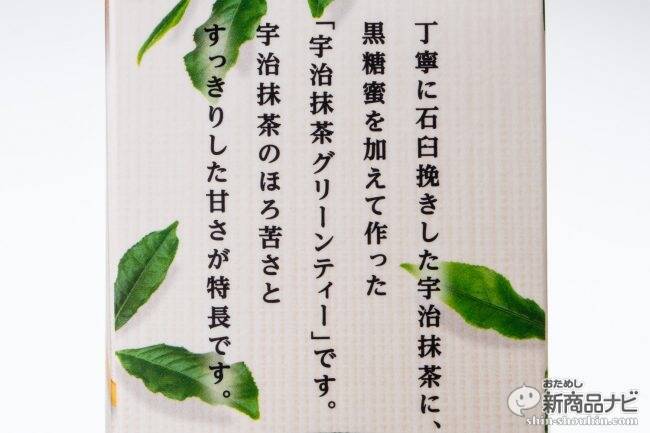 丁寧に石臼挽きした宇治抹茶に、
黒糖蜜を加えて作った
「宇治抹茶グリーンティー」です。
宇治抹茶のほろ苦さと
すっきりした甘さが特長です。
おためし
新商品ナビ
shin-shouhin.com